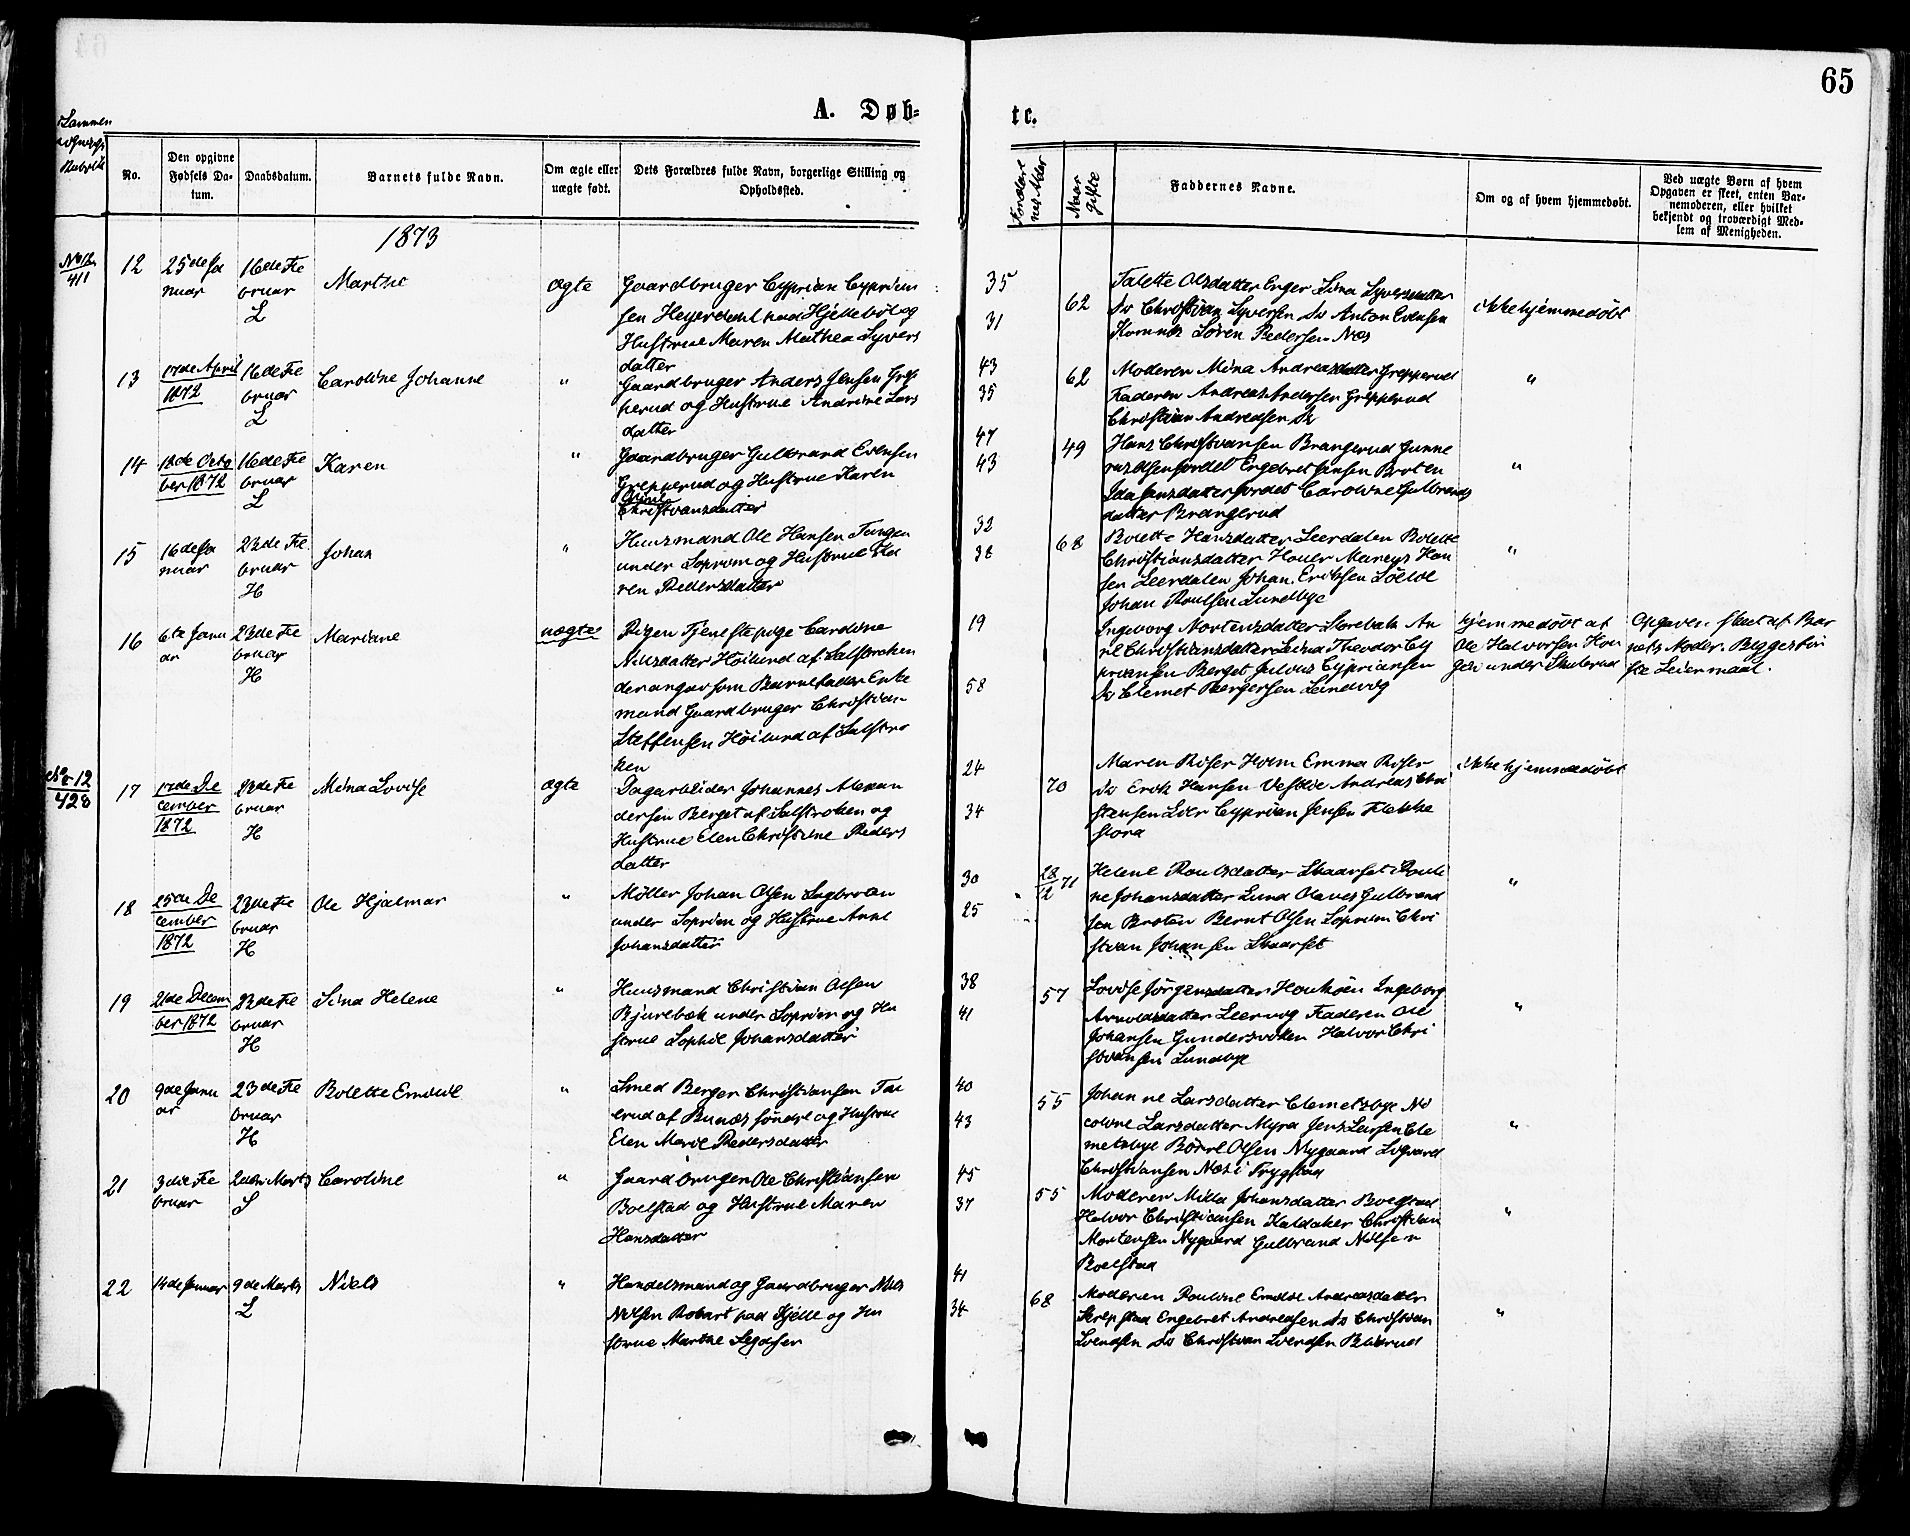 65
A. Døb-
te.
No.
Den opgivne
Fødsels Da-
tum.
Daabsdatum.
Barnets fulde Navn.
Om ægte eller
uægte født.
Dets Forældres fulde Navn, borgerlige Stilling og
Opholdssted.
Forældre
nes Alder
Naar
gifte
Faddernes Navne.
Om og af hvem hjemmedøbt.
Ved uægte Børn af hvem
Opgaven er skeet, enten Bar-
nemoderen, eller hvilket
bekjendt og troværdigt Med-
lem af Menigheden.
1873
No 12
411
12
25de Ja
nuar
16de Fe
bruar
L
Marthe
ægte
Gaardbruger Cyprian Cyprian
sen Heyerdahl paa Hjellebøl og
Hustrue Maren Mathea Syvers
datter
35
31
62
Talette Olsdatter Enger Lina Syversdatter
Do Christian Syversen Do Anton Evensen
Søren Pedersen Næs
ikke hjemmedøbt
13
17de April
1872
16de Fe
bruar
L
Caroline Johanne
"
Gaardbruger Anders Jensen Grep
perud og Hustrue Andrine Lars
datter
43
35
62
Moderen Mina Andreasdatter Grepperud
Faderen Andreas Andersen Grepperud
Christian Andreasen Do
"
14
18de Octo
ber 1872
16de Fe
bruar
L
Karen
"
Gaardbruger Gulbrand Evensen
Grepperud og Hustrue Karen
Christiansdatter
47
43
49
Hans Christiansen Brangerud Gunne
rius Olsen Fordet Engebret Jensen Broten
Ida Jensdatter Fordet Caroline Gulbrands
datter Brangerud
"
15
16de Ja
nuar
23de Fe
bruar
H
Johan
"
Huusmand Ole Hansen Tangen
under Soprim og Hustrue Ka
ren Pedersdatter
32
38
68
Bolette Hansdatter Leerdalen Bolette
Christiansdatter Hauer Marcus Han
sen Leerdalen Johan Eriksen
Johan Poulsen Lundbye
"
16
6te Janu
ar
23de Fe
bruar
H
Mariane
uægte
Pigen Tjenestepige Caroline
Nilsdatter Høilund af Salstroken
der angav som Barnefader Enke
mand Gaardbruger Christian
Steffensen Høilund af Salstro
ken
19
58
Ingeborg Mortensdatter Sorebæk An
ne Christiansdatter Theodor Cy
priansen Berget Julius Cypriansen
Do Clemet Bergersen Lundvig
hjemmedøbt af
Ole Halvorsen Hau
gen under Skulerud
Opgaven skeet af Bar
nets Moder. Begges før
ste Leiermaal.
No 12
428
17
17de De
cember
1872
23de Fe
bruar
H
Mina Lovise
ægte
Dagarbeider Johannes Alexan
dersen Berget af Salstroken og
Hustrue Elen Christine Peders
datter
24
34
70
Maren Roser Holm Emma Roser
Do Erik Hansen Andreas Chri
stensen Lier Cyprian Jensen
flora
ikke hjemmedøbt
18
25de De
cember
1872
23de Fe
bruar
H
Ole Hjalmar
"
Møller Johan Olsen
under Soprim og Hustrue Anne
Johansdatter
30
25
28/12 71
Helene Poulsdatter Skaarset Pauli
ne Johansdatter Lund Olaves Gulbrand
sen Broten Bernt Olsen Soprim Chri
stian Johansen Skaarset
"
19
21de Decem
ber 1872
23de Fe
bruar
H
Lina Helene
"
Huusmand Christian Olsen
Bjurebæk under Soprim og Hu
strue Sophie Johansdatter
38
41
57
Lovise Jørgensdatter Ingeborg
Arnoldsdatter Leervig Faderen Ole
Johansen Gundersviken Halvor Chri
stiansen Lundbye
"
20
9de Janu
ar
23de Fe
bruar
H
Bolette Emilie
"
Smed Berger Christiansen Ta
erud af Bunæs søndre og Hustrue
Elen Marie Pedersdatter
40
43
55
Johanne Larsdatter Clemetsbye Ni
coline Larsdatter Myra Jens Larsen Cle
metsbye Børre Olsen Nygaard Sigvard
Christiansen Næs i Trygstad
"
21
3die Fe
bruar
2den Marts
S
Caroline
"
Gaardbruger Ole Christiansen
Boelstad og Hustrue Maren
Hansdatter
45
37
55
Moderen Milla Johansdatter Boelstad
Halvor Christiansen Kaldaker Christian
Mortensen Nygaard Gulbrand Nilsen
Boelstad
"
22
14de Januar
9de Marts
L
Niels
"
Handelsmand og Gaardbruger Niels
Nilsen Robart paa Hjelle og Hu
strue Marthe
41
34
68
Moderen Pouline Emilie Andreasdatter
Engebret Andreasen Do Christian
Svendsen Do Christian Svendsen
"